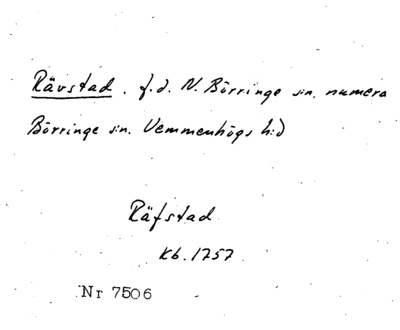 Rävstad. f.d. N. Börringe sn. numera
Börringe sn. Vemmenhögs h:d
Räfstad
Kb. 1757
Nr 7506